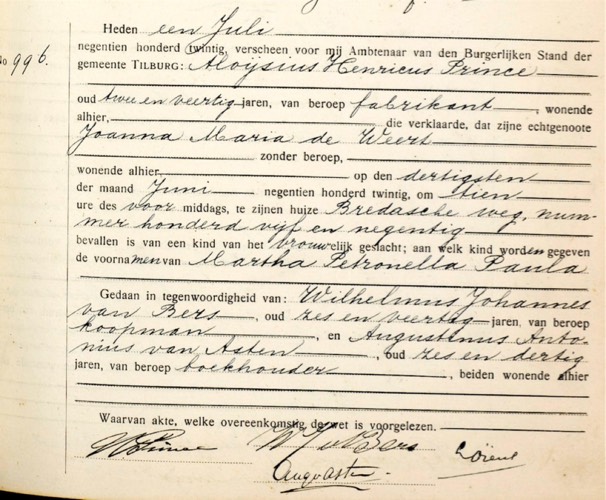 Heden een Juli
No 996.
negentien honderd twintig, verscheen voor mij Ambtenaar van den Burgerlijken Stand der
gemeente TILBURG: Aloÿsius Henricus Prince
oud twee en veertig jaren, van beroep fabrikant, wonende
alhier, die verklaarde, dat zijne echtgenoote
Joanna Maria de Weert
zonder beroep,
wonende alhier, op den dertigsten
der maand Juni negentien honderd twintig, om tien
ure des voor middags, te zijnen huize Bredasche weg, num-
mer honderd vijf en negentig
bevallen is van een kind van het vrouwelijk geslacht; aan welk kind worden gegeven
de voornamen van Martha Petronella Paula
Gedaan in tegenwoordigheid van: Wilhelmus Johannes
van Bers, oud zes en veertig jaren, van beroep
koopman, en Augustinus Anto-
nius van Asten, oud zes en dertig
jaren, van beroep boekhouder, beiden wonende alhier
Waarvan akte, welke overeenkomstig de wet is voorgelezen.
Prince W J v Bers
Aug v Asten